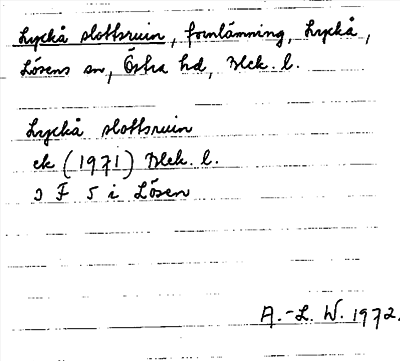 Lyckå slottsruin, fornlämning, Lyckå,
Lösens sn, Östra hd, Blek. l.
Lyckå slottsruin
ek (1971) Blek. l.
3 F 5 i Lösen
A.-L. W. 1972.